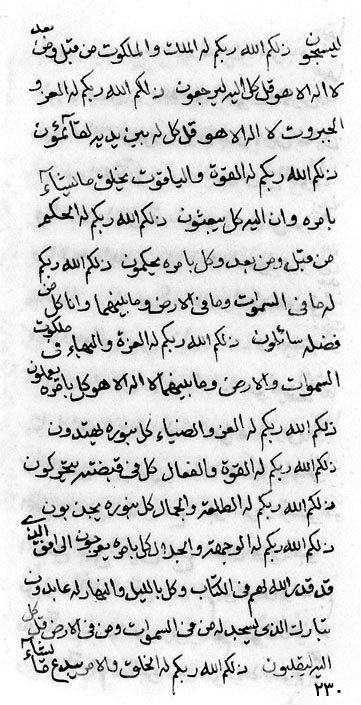 ليسجون ذلكم الله ربكم له الملك والملكوت من قبل ومن بعد
لا اله الا هو قل كل اليه ليرجعون ذلكم الله ربكم له العز و
الجبروت لا اله الا هو قل كل له بين يديه لقائمون
ذلكم الله ربكم له القوة والياقوت يخلق ما يشاء
بامره وان اليه كل يبعثون ذلكم الله ربكم له الحكم
من قبل ومن بعد وكل بامره يحكمون ذلكم الله ربكم
له ما في السموات وما في الارض وما بينهما وانا كل من
فضله سائلون ذلكم الله ربكم له العزة والبهاء في ملكوت
السموات والارض وما بينهما لا اله الا هو كل بامره يعملون
ذلكم الله ربكم له العز والضياء كل بنوره يهتدون
ذلكم الله ربكم له القوة والفعال كل في قبضته يتحركون
ذلكم الله ربكم له الطلعة والجمال كل بنوره يجذبون
ذلكم الله ربكم له الوجهة والجلال كل بامره يعرجون الى افق
قد قدر الله لهم في الكتاب وكل بالليل والنهار له عابدون
تبارك الذي يسجد له من في السموات ومن في الارض قل كل
اليه ليقلبون ذلكم الله ربكم له الخلق والامر يبدع ما يشاء
٢٣٠